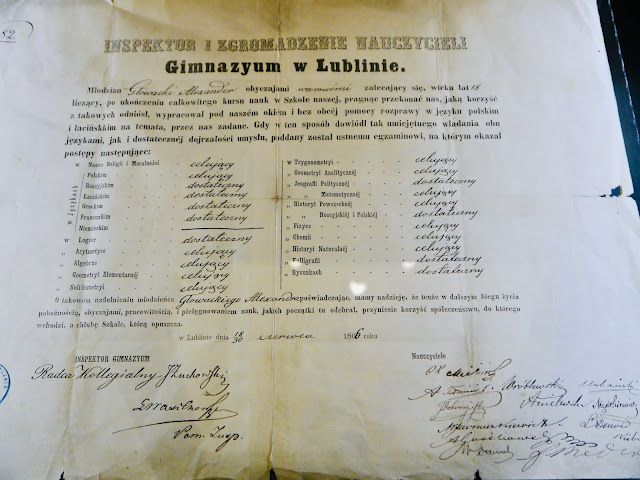 82
INSPEKTOR I ZGROMADZENIE NAUCZYCIELI
Gimnazyum w Lublinie.
Młodzian Głowacki Alexander obyczajami wzorowemi zalecający się, wieku lat 18
liczący, po ukończeniu całkowitego kursu nauk w Szkole naszej, pragnąc przekonać nas, jaką korzyść
z takowych odniósł, wypracował pod naszém okiem i bez obcéj pomocy rozprawy w języku polskim
i łacińskim na temata, przez nas zadane. Gdy w ten sposób dowiódł tak umiejętnego władania obu
językami, jak i dostatecznéj dojrzałości umysłu, poddany został ustnemu egzaminowi, na którym okazał
postępy następujące:
w Nauce Religii i Moralności celujący
w Językach
Polskim celujący
Rossyjskim dostateczny
Łacińskim dostateczny
Greckim dostateczny
Francuzkim dostateczny
Niemieckim
w Logice dostateczny
„ Arytmetyce celujący
„ Algebrze celujący
„ Geometryi Elementarnéj celującą
„ Solidometryi celujący
w Trygonometryi celujący
„ Geometryi Analitycznéj celujący
„ Jeografii Politycznéj dostateczny
„ „ Matematycznéj celujący
„ Historyi Powszechnéj celujący
„ „ Rossyjskiéj i Polskiéj dostateczny
„ Fizyce celujący
„ Chemii celujący
„ Historyi Naturalnéj celujący
„ Kalligrafii dostateczny
„ Rysunkach dostateczny
O takowém uzdolnieniu młodzieńca Głowackiego Alexandra zpoświadczając, mamy nadzieję, że tenże w dalszym biegu życia
pobożnością, obyczajami, pracowitością, i pielęgnowaniem nauk, jakich początki tu odebrał, przyniesie korzyść społeczeństwu, do którego
wchodzi, a chlubę Szkole, którą opuszcza.
w Lublinie dnia 18/30 czerwca 1866 roku
INSPEKTOR GIMNAZYUM
Nauczyciele
Radca Kollegialny J Żuchowski
Pom. Insp.